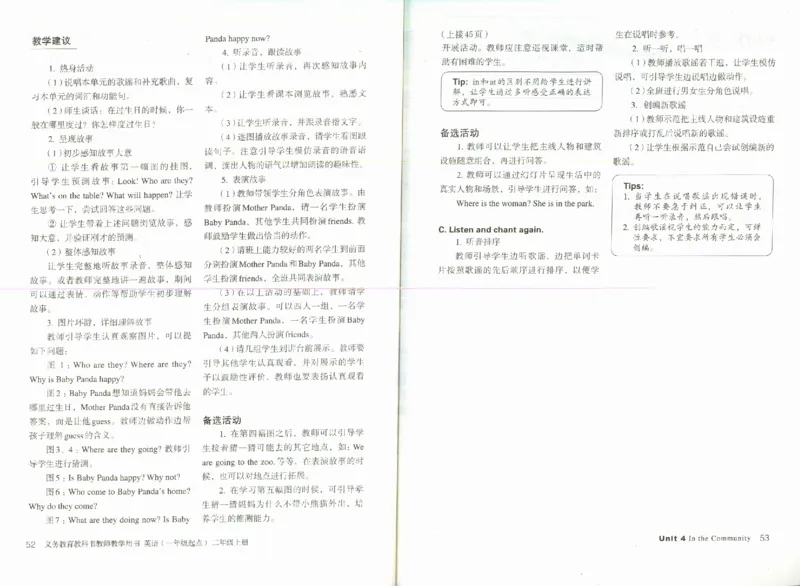 教学建议
1. 热身活动
(1)说唱本单元的歌谣和补充歌曲,复
习本单元的词汇和功能句。
(2)师生谈话:在过生日的时候,你一
般在哪里度过?你怎样度过生日?
2. 呈现故事
(1)初步感知故事大意
① 让学生看故事第一幅面的挂图,
引导学生预测故事:Look! Who are they?
What's on the table? What will happen? 让学
生思考一下,尝试回答这些问题。
② 让学生带着上述问题浏览故事,感
知大意,并验证刚才的预测。
(2)整体感知故事
让学生完整地听故事录音,整体感知
故事。或者教师完整地讲一遍故事,期间
可以通过表情、动作等帮助学生初步理解
故事。
3. 图片环游,详细理解故事
教师引导学生认真观察图片,可以提
如下问题:
图 1:Who are they? Where are they?
Why is Baby Panda happy?
图2:Baby Panda想知道妈妈会带他去
哪里过生日,Mother Panda没有直接告诉他
答案,而是让他guess。教师边做动作边帮
孩子理解guess的含义。
图3、4:Where are they going? 教师引
导学生进行猜测。
图5:Is Baby Panda happy? Why not?
图6:Who come to Baby Panda's home?
Why do they come?
图7:What are they doing now? Is Baby
52 义务教育教科书教师教学用书 英语(一年级起点) 二年级上册
Panda happy now?
4. 听录音,跟读故事
(1)让学生听录音,再次感知故事内
容。
(2)让学生看课本浏览故事,熟悉文
本。
(3)让学生听录音,并跟录音指文字。
(4)逐图播放故事录音,请学生看图跟
读句子。注意引导学生模仿录音的语音语
调,演出人物的语气以增加朗读的趣味性。
5. 表演故事
(1)教师带领学生分角色表演故事。由
教师扮演Mother Panda,请一名学生扮演
Baby Panda,其他学生共同扮演friends. 教
师鼓励学生做出恰当的动作。
(2)请班上能力较好的两名学生到前面
分别扮演Mother Panda和Baby Panda,其他
学生扮演friends,全班共同表演故事。
(3)在以上活动的基础上,教师请学
生分组表演故事。可以四人一组,一名学
生扮演Mother Panda,一名学生扮演Baby
Panda,其他两人扮演friends。
(4)请几组学生到讲台前展示。教师要
引导其他学生认真观看,并对展示的学生
予以鼓励性评价。教师也要表扬认真观看
的学生。
备选活动
1. 在第四幅图之后,教师可以引导学
生接着猜一猜可能去的其它地点,如:We
are going to the zoo.等等。在表演故事的时
候,也可以对地点进行拓展。
2. 在学习第五幅图的时候,可引导学
生猜一猜妈妈为什么不带小熊猫外出,培
养学生的推测能力。
(上接45页)
开展活动。教师应注意巡视课堂,适时帮
助有困难的学生。
Tip: in和at的区别不用给学生进行讲
解,让学生通过多听感受正确的表达
方式即可。
备选活动
1. 教师可以让学生把主线人物和建筑
设施随意组合,再进行问答。
2. 教师可以通过幻灯片呈现生活中的
真实人物和场景,引导学生进行问答,如:
Where is the woman? She is in the park.
C. Listen and chant again.
1. 听音排序
教师引导学生边听歌谣,边把单词卡
片按照歌谣的先后顺序进行排序,以便学
生在说唱时参考。
2. 听一听,唱一唱
(1)教师播放歌谣若干遍,让学生模仿
说唱,可引导学生边说唱边做动作。
(2)全班进行男女生分角色说唱。
3. 创编新歌谣
(1)教师示范把主线人物和建筑设施重
新排序或打乱后说唱新的歌谣。
(2)让学生根据示范自己尝试创编新的
歌谣。
Tips:
1. 当学生在说唱歌谣出现错误时,
教师不要急于纠正,可以让学生
再听一听录音,然后跟唱。
2. 创编歌谣视学生的能力而定,可弹
性要求,不需要求所有学生必须会
创编。
Unit 4 In the Community 53